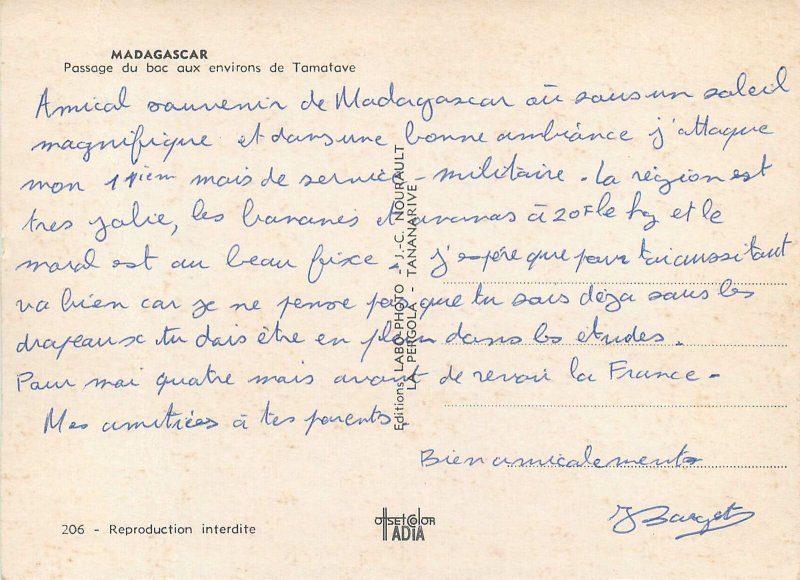 MADAGASCAR
Passage du bac aux environs de Tamatave
Amical souvenir de Madagascar où sous un soleil
magnifique et dans une bonne ambiance j'attaque
mon 11ièm mois de service-militaire. La région est
tres jolie, les bananes et ananas à 20F le kg et le
moral est au beau fixe - j'espére que pour toi aussi tout
va bien car je ne pense pas que tu sois déja sous les
drapeaux tu dois être en plein dans les etudes.
Pour moi quatre mois avant de revoir la France -
Mes amitiées à tes parents.
Bien amicalement
Editions LABO-PHOTO - J.-C. NOURAULT
LA PERGOLA - TANANARIVE
206 - Reproduction interdite
OFFSETCOLOR
IADIA